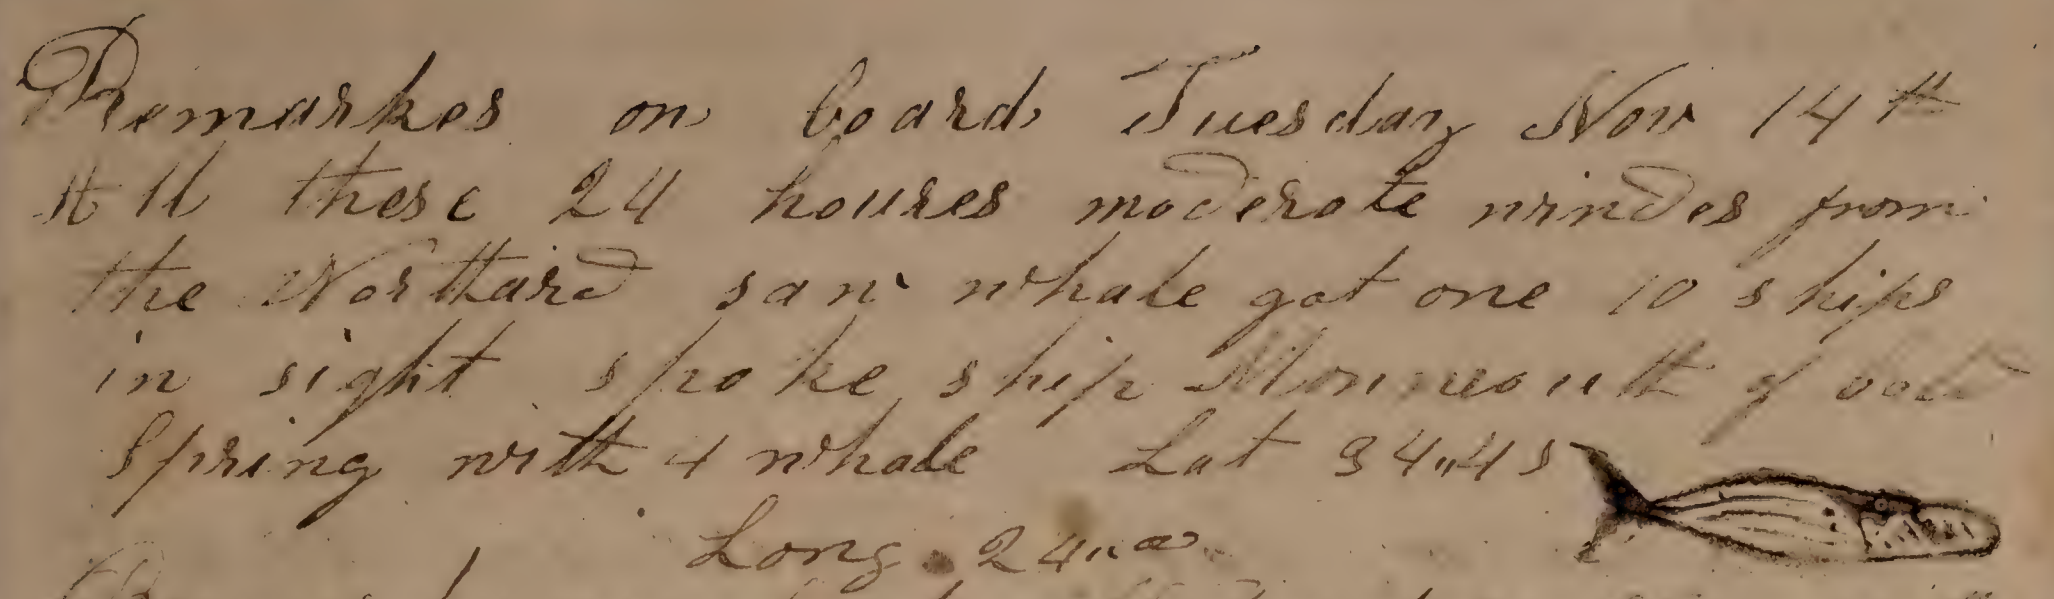 Remarkes on board Tuesday Nov 14th
All these 24 houres moderate windes from
the Northard saw whale got one 10 ships
in sight spoke ship Monmouth of
Spring with 4 whale Lat 34,,43
Long 24,,00